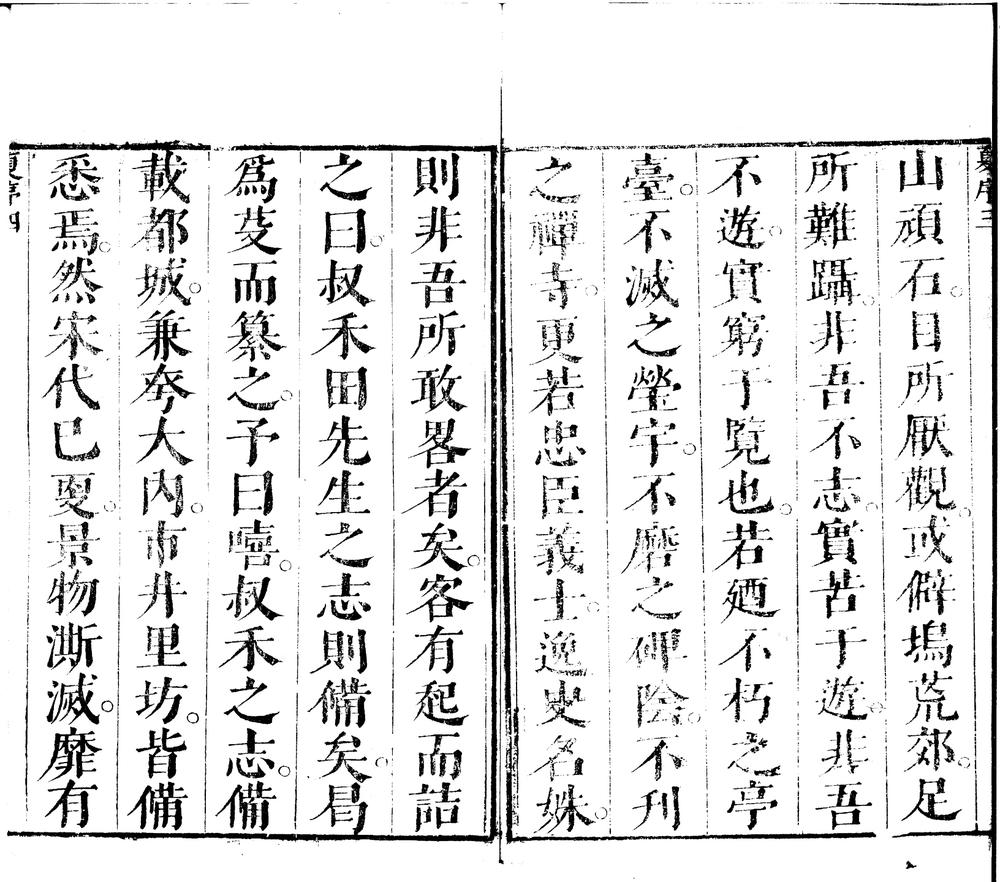 山頑石目所厭觀或僻塢荒郊足
所難躡非吾不志實苦于遊非吾
不遊實窮于覽也若廼不朽之亭
臺不滅之塋宇不磨之碑陰不刊
之禪寺更若忠臣義士逸史名姝
則非吾所敢畧者矣客有起而詰
之曰叔禾田先生之志則備矣曷
爲芟而纂之予曰嘻叔禾之志備
載都城兼夸大內市井里坊皆備
悉焉然宋代已更景物澌滅靡有